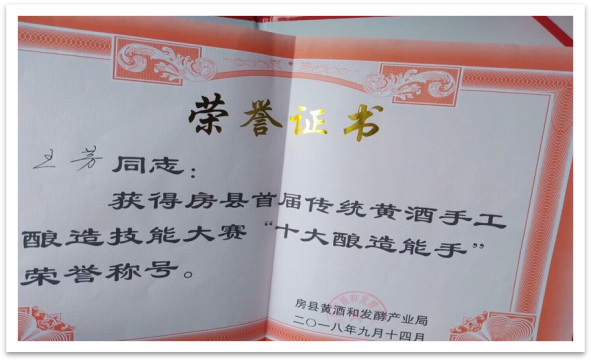 荣誉证书
王芳同志：
获得房县首届传统黄酒手工
酿造技能大赛“十大酿造能手”
荣誉称号。
房县黄酒和发酵产业局
二〇一八年九月十四日